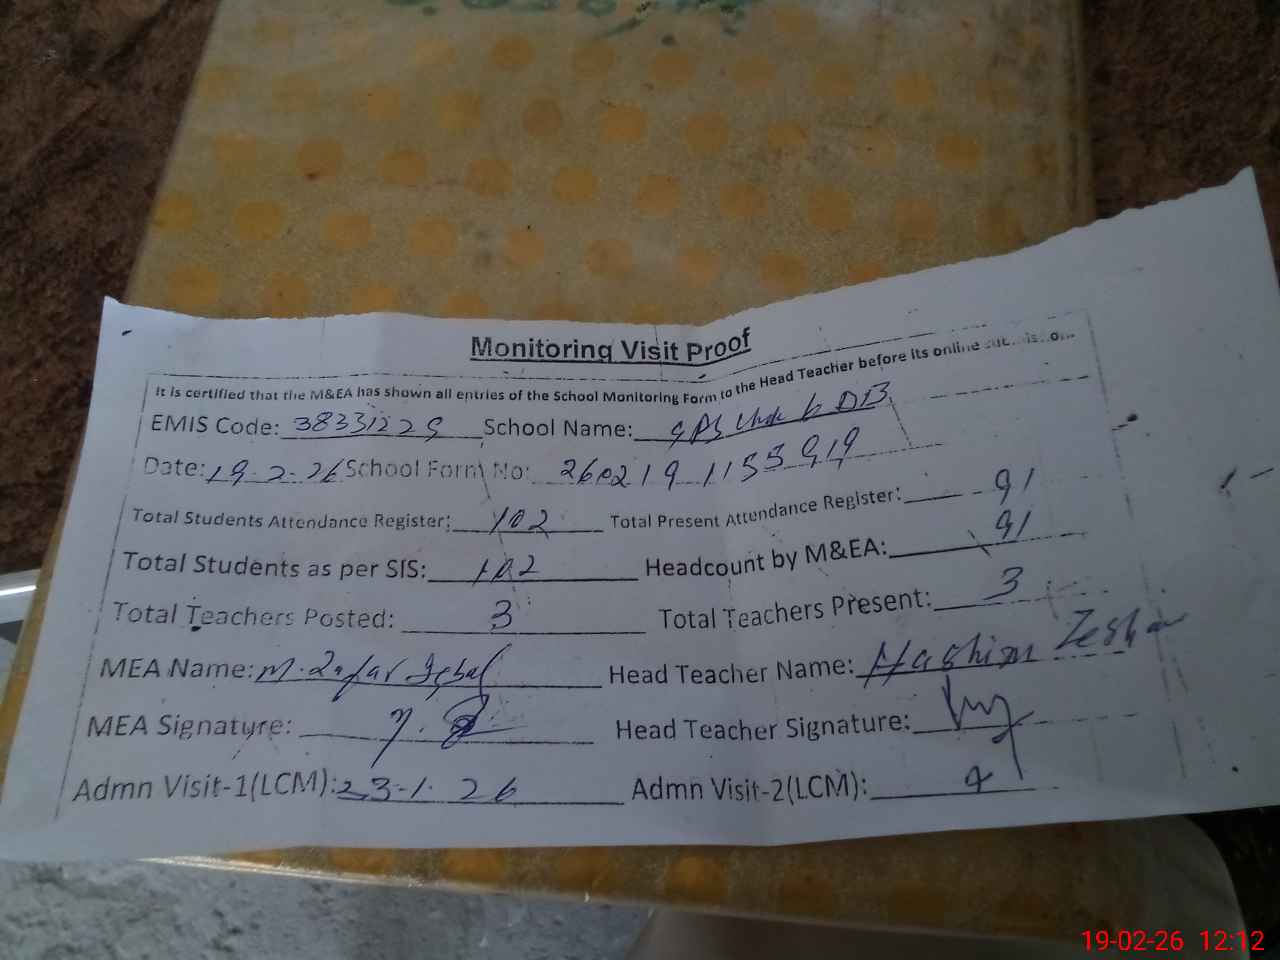 Monitoring Visit Proof
It is certified that the M&EA has shown all entries of the School Monitoring Form to the Head Teacher before its online
EMIS Code: 38331229 School Name: GPS DB
Date: 19-2-26 School Form No: 260219 1155919
Total Students Attendance Register: 102 Total Present Attendance Register: 91
Total Students as per SIS: 102 Headcount by M&EA: 91
Total Teachers Posted: 3 Total Teachers Present: 3
MEA Name: M. Zafar Iqbal Head Teacher Name: Hashim Zesha
MEA Signature: Head Teacher Signature:
Admn Visit-1(LCM): 23-1-26 Admn Visit-2(LCM):
19-02-26 12:12